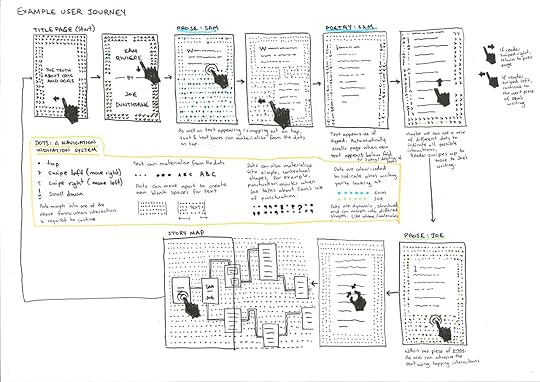 EXAMPLE USER JOURNEY
TITLE PAGE (Start)
THE TRUTH
ABOUT CATS
AND DOGS
SAM
RIVIERE
BY
JOE
DUNTHORNE
PROSE: SAM
As well as text appearing / swapping out on tap,
text & text boxes can materialise from the dots
on tap.
POETRY: SAM
Text appears as if
typed. Automatically
scrolls page when new
text appears below fold
Maybe we can use a mix
of different dots to
indicate all possible
interactions.
Reader swipes up
to move to Joe's
writing.
If reader
swipes right,
return to prev
page
If reader
swipes left,
continue to
the next piece
of Sam's
writing
DOTS: A NAVIGATION
INDICATION SYSTEM
• tap
> swipe left (move right)
< swipe right (move left)
scroll down
Dots morph into one of the
above forms when interaction
is required to continue
Text can materialise from the dots
A B C A B C
Dots can move apart to create
new blank spaces for text
Dots can also materialise
into simple, contextual
shapes, for example,
punctuation marks when
Joe talks about Sam's use
of punctuation
Dots are colour-coded
to indicate whose writing
you're looking at
SAM
JOE
Dots are dynamic, structured
and can morph into different
shapes. Like atoms/molecules
STORY MAP
SAM
JOE
PROSE: JOE
Within one piece of prose,
the user can advance the
text using tapping interactions